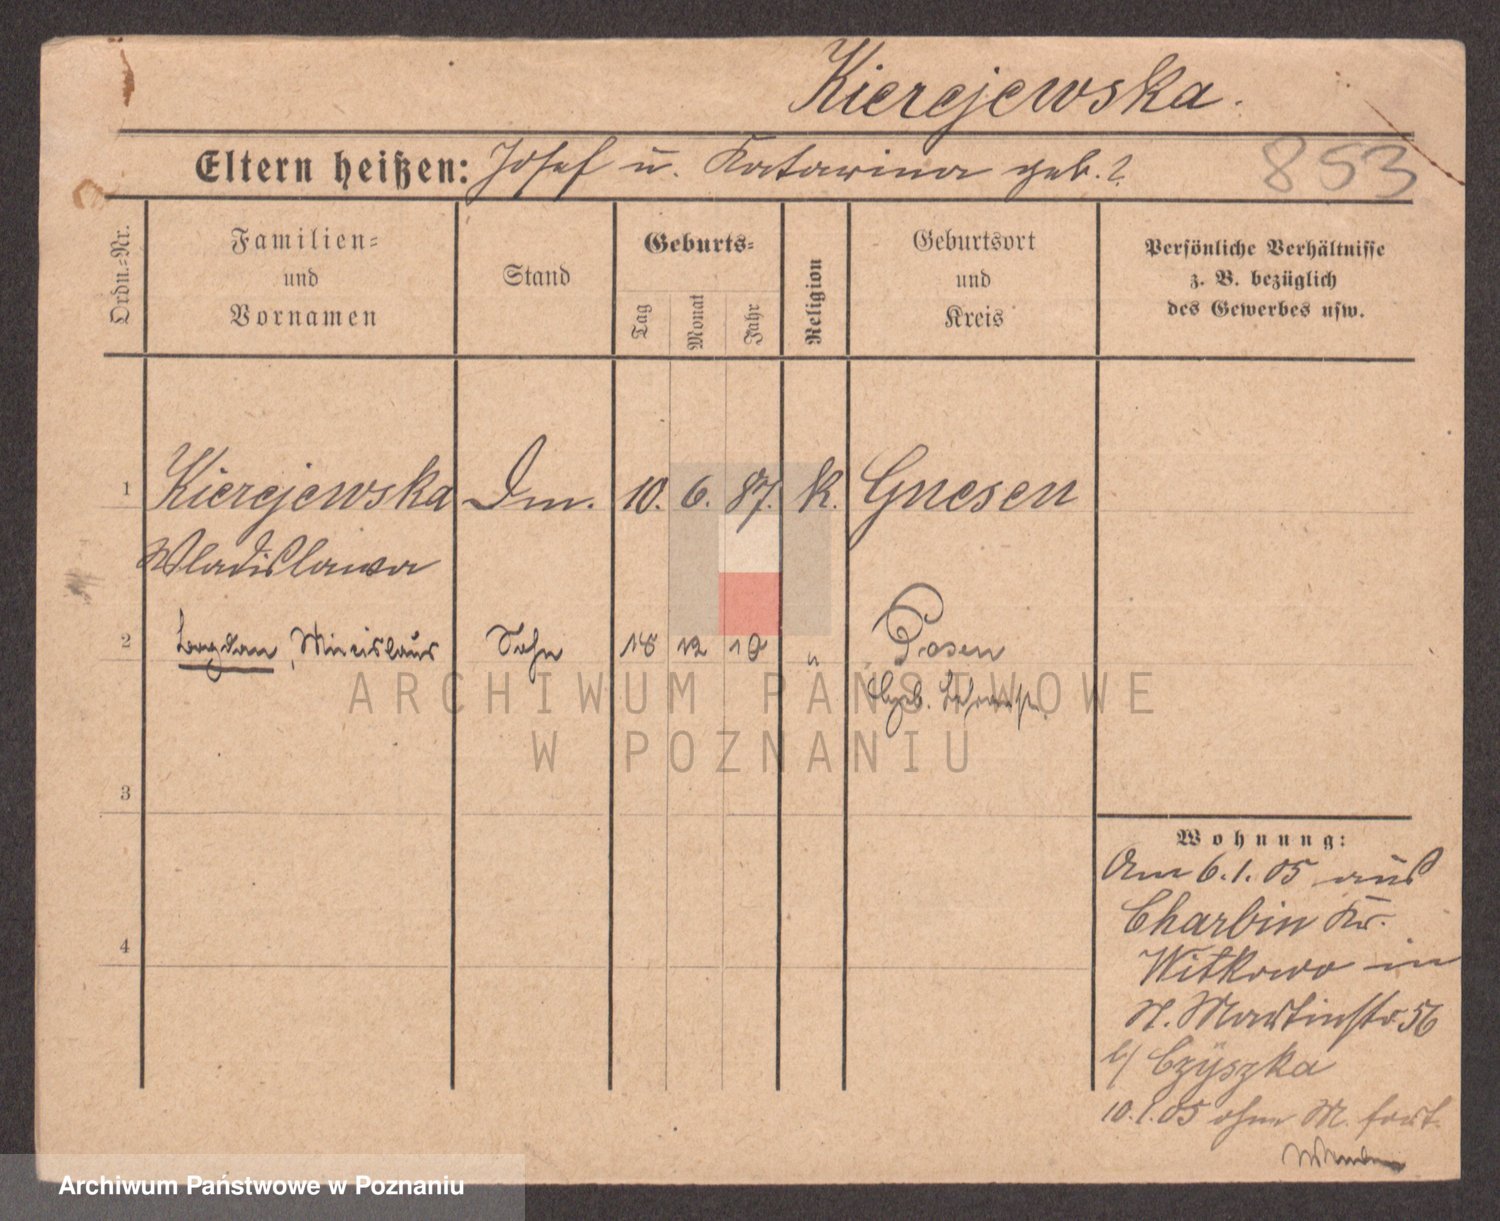 Kierejewska.
Eltern heißen: Josef u. Katarina geb. ?
853
Ordn.-Nr.
Familien-
und
Vornamen
Stand
Geburts-
Tag
Monat
Jahr
Religion
Geburtsort
und
Kreis
Persönliche Verhältnisse
z. B. bezüglich
des Gewerbes usw.
1 Kierejewska Dm. 10. 6. 87. k. Gnesen
Wladislawa
2 Bogdan, Miecislaus Sohn 18 12 19 " Posen
ARCHIWUM PAŃSTWOWE
W POZNANIU
3
4
Wohnung:
Am 6.1.05 aus
Charbin Kr.
Witkowo in
St. Martinstr 56
b/ Czÿszka
10.1.05 ohne M. fort.
Archiwum Państwowe w Poznaniu